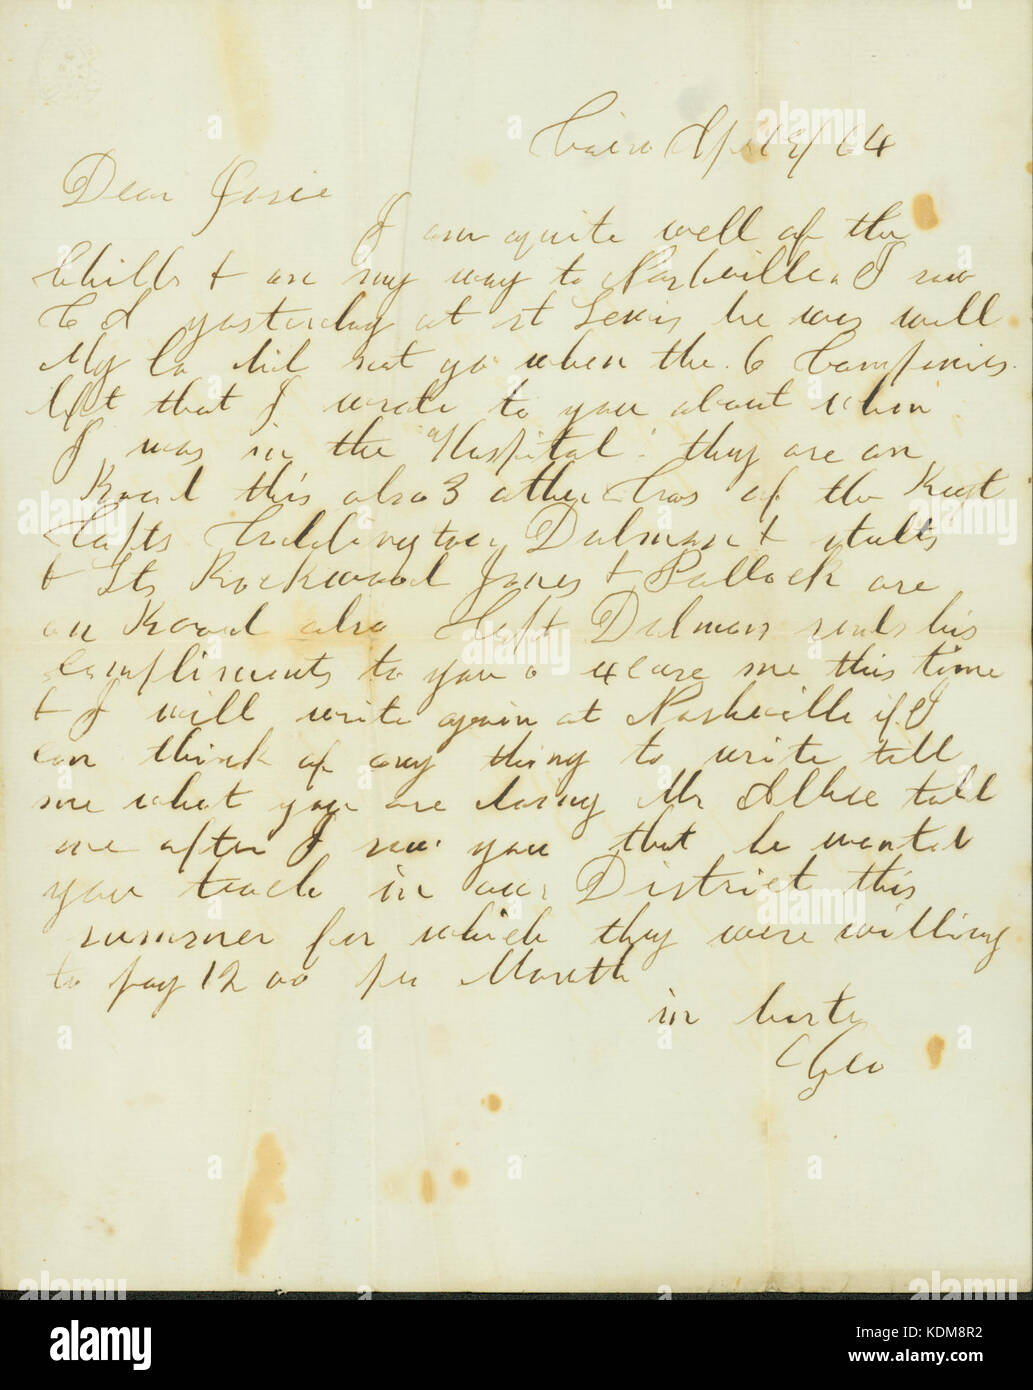 Cairo Apr 19/64
Dear Josie
I am quite well of the
Chills & on my way to Nashville. I saw
Ed yesterday at st Lewis he was well
My Co did not go when the 6 Companies
left that I wrote to you about when
I was in the "Hospital". they are on
Board this also 3 other Cos of the Regt
Capts Dulman & Stults
& Lts Rockwood Jones & Pollock are
on Board also Capt Dulman sends his
compliments to you. excuse me this time
& I will write again at Nashville if I
can think of any thing to write tell
me what you are doing Mr told
me after I saw you that he wanted
you teach in our District this
summer for which they were willing
to pay 12 00 per Month
in haste
Geo
alamy
Image ID: KDM8R2
www.alamy.com